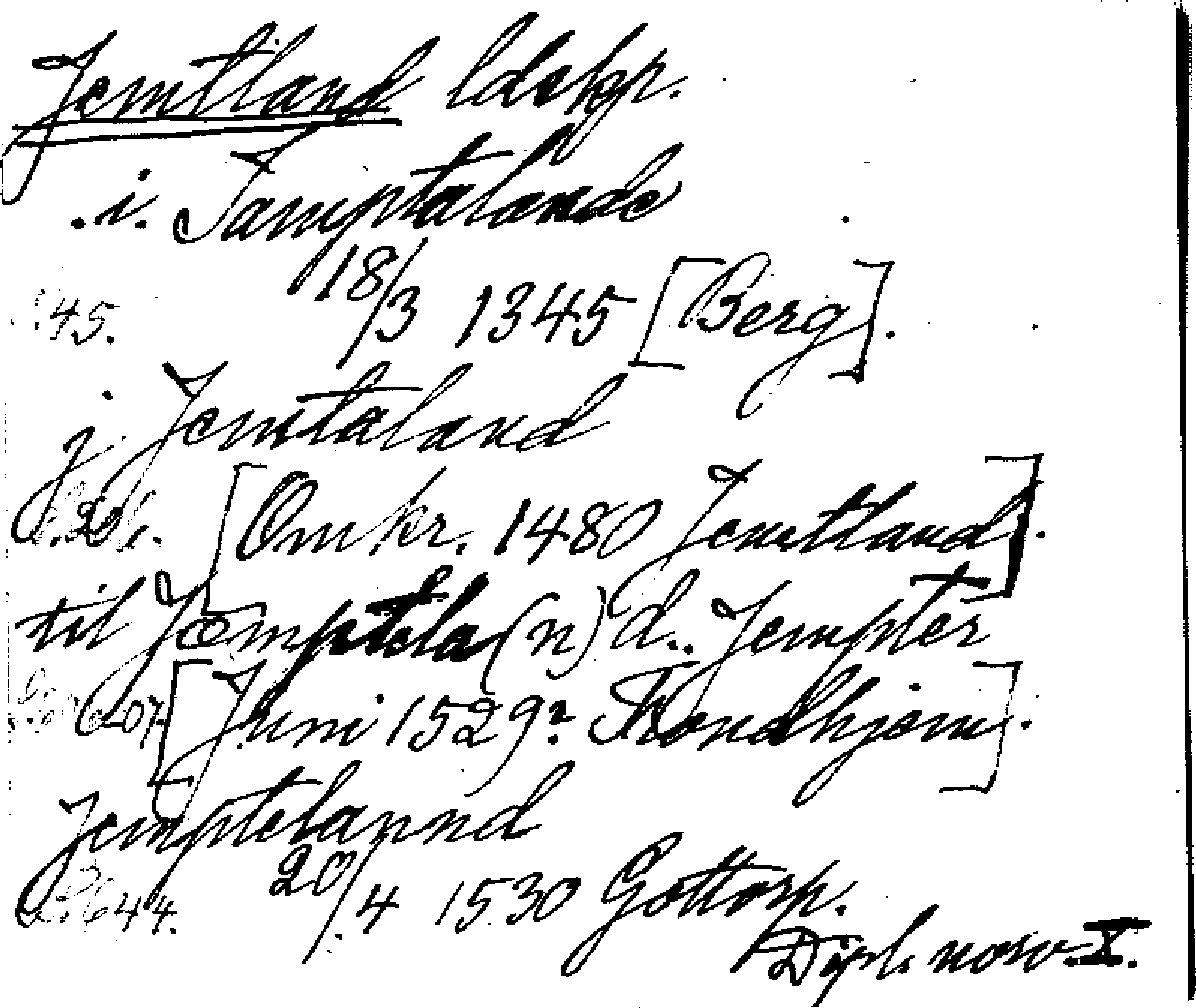 Jemtland ldskp.
i. Jamptalande
45. 18/3 1345 [Berg].
j Jemtaland
[Omkr. 1480 Jemtland].
til Jemptela(n)d. Jempter
607. [Juni 1529? Trondhjem].
Jemptelannd
644. 20/4 1530 Gottorp.
Dipl. norv. X.